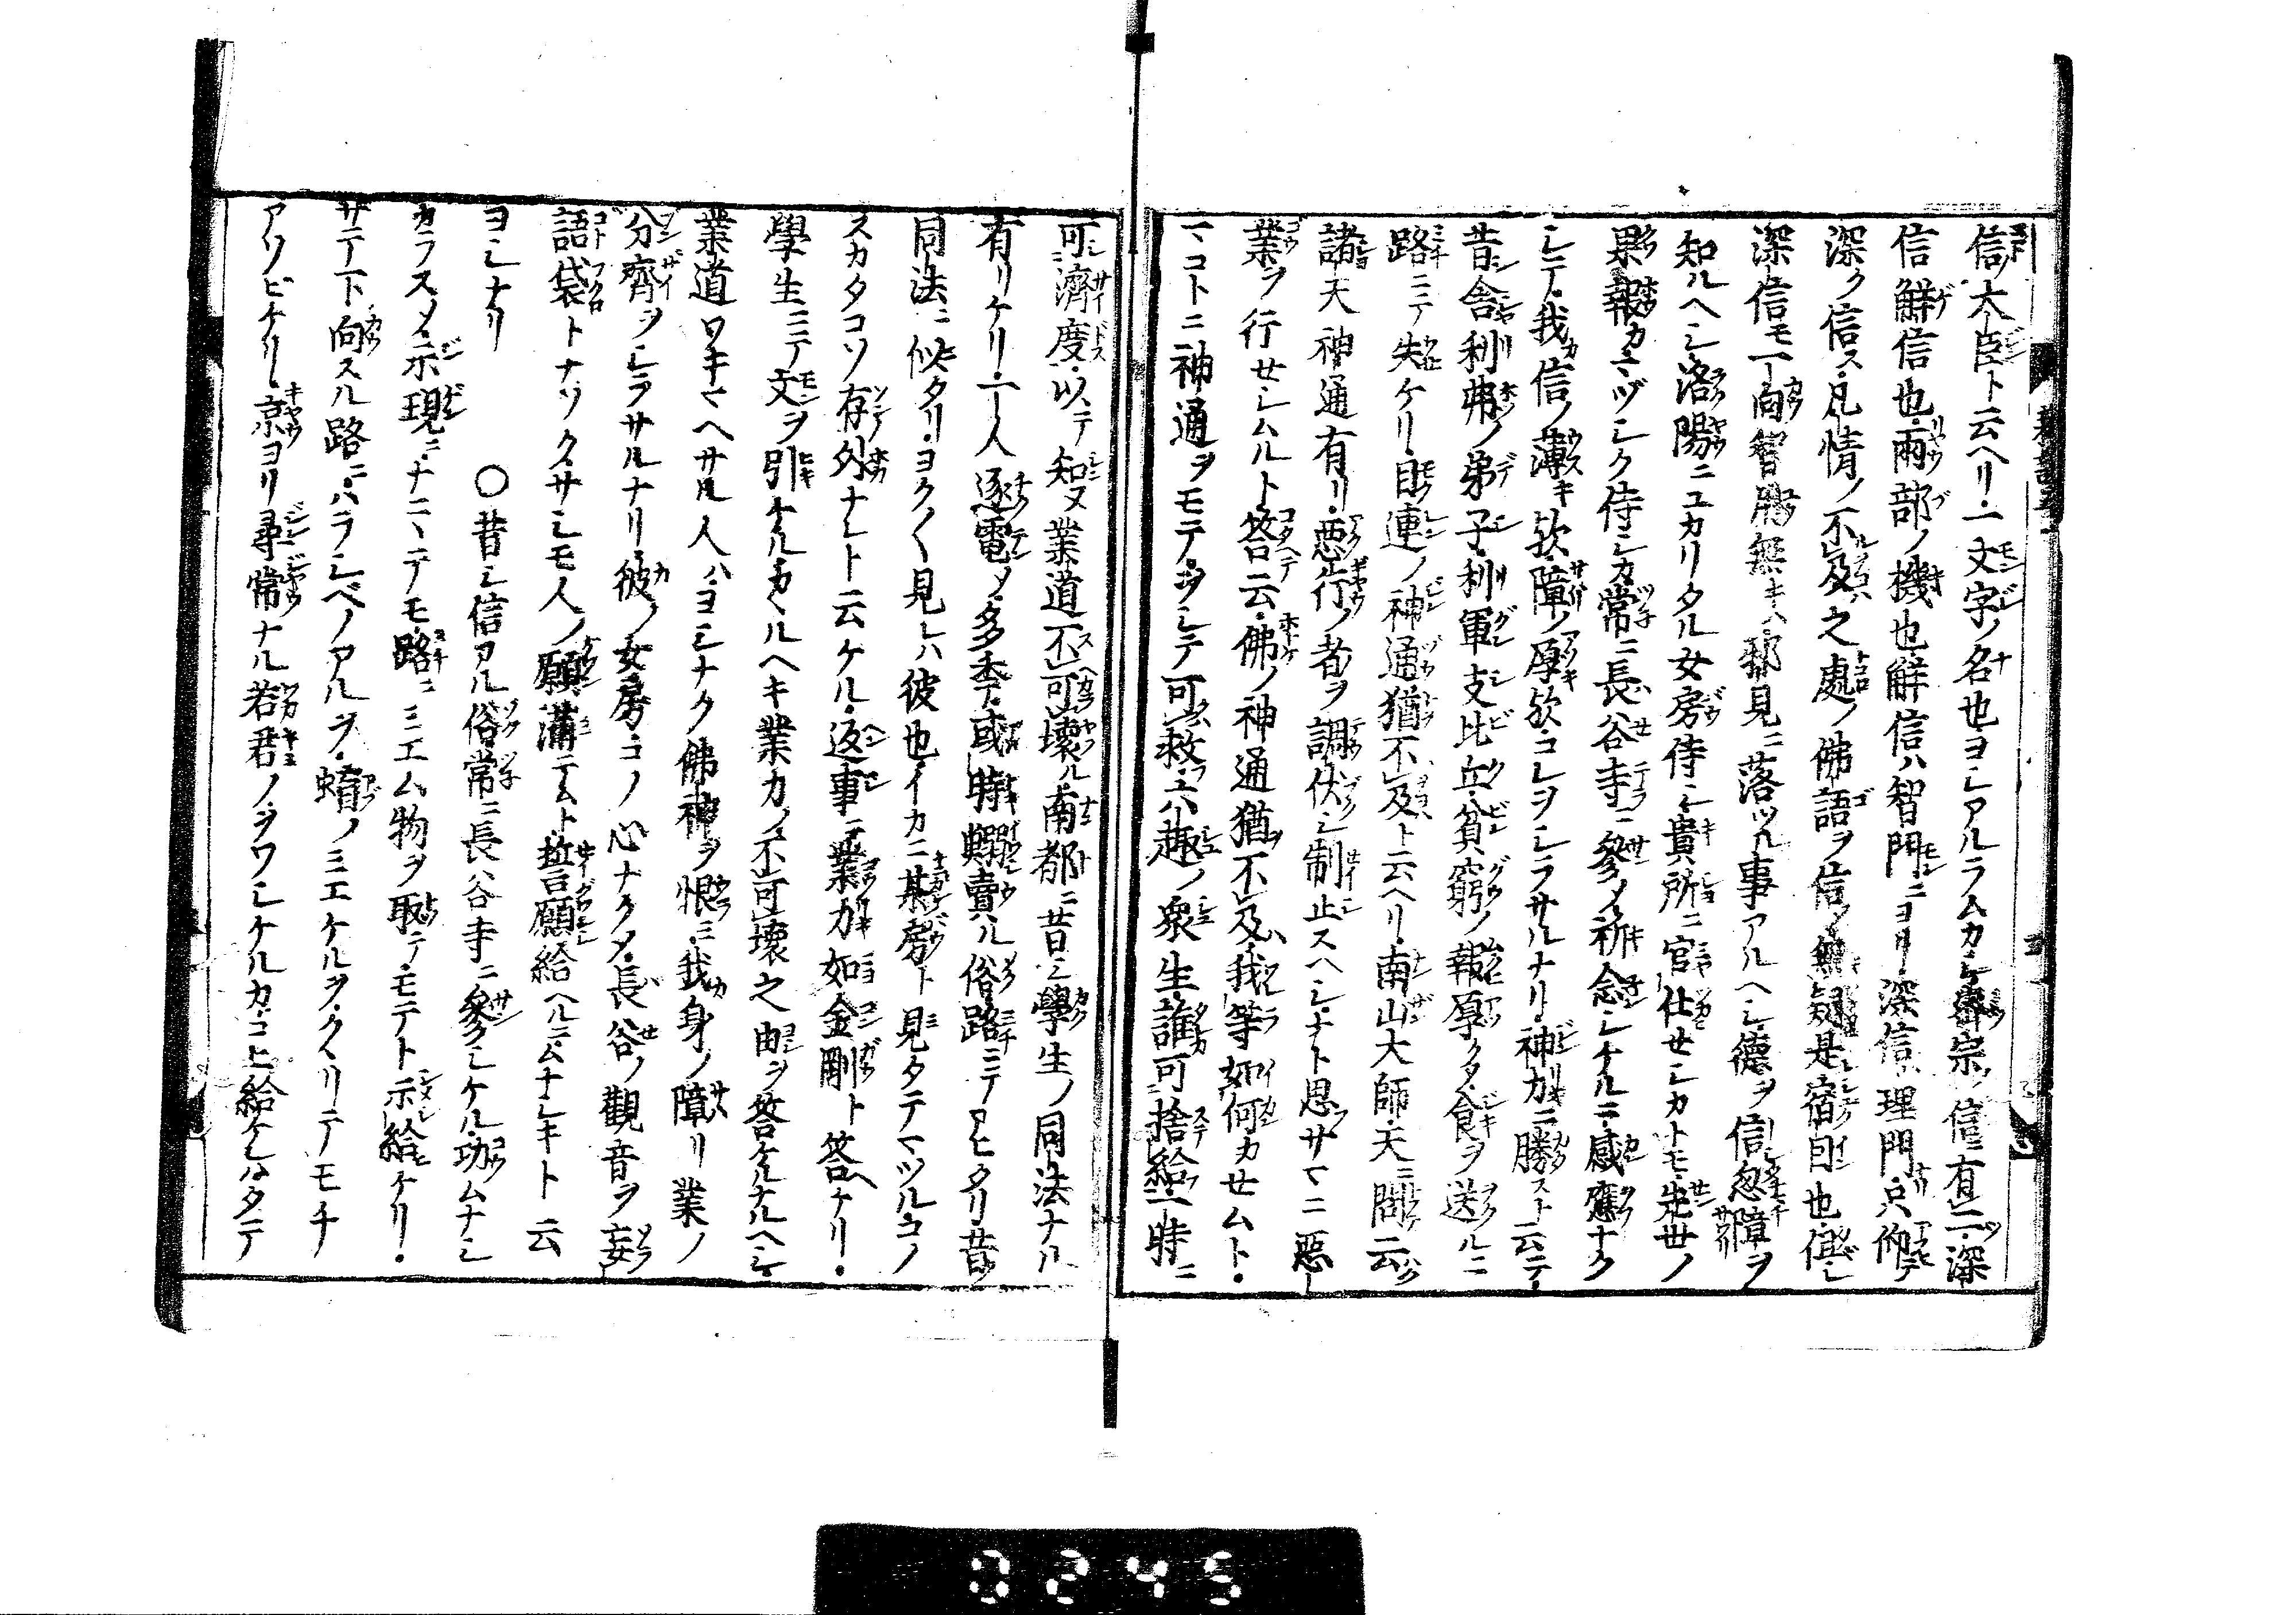 信大臣ト云ヘリ・一文字ノ名也ヨシアルラムカシ宗ノ信有二・深
信解信也・兩部ノ機也解信ハ智門ニヨリ深信ハ理門・只仰テ
深ク信ス・凡情ノ不及之處ノ佛語ヲ信メ無疑是宿因也・但シ
深信モ一向智惠無キハ邪見ニ落ツル事アルヘシ・德ヲ信忽障ヲ
知ルヘシ・洛陽ニユカリタル女房侍シ貴所ニ官仕セシカトモ・先世ノ
果報カマヅシク侍シカ常ニ長谷寺ニ參メ祈念シケルニ・感應ナク
シテ・我信ノ薄キ欤・障ノ厚欤・コレヲシラサルナリ・神力ニ勝スト云テ・
昔シ舎利弗ノ弟子・利軍支比丘・貧窮ノ報厚クメ・食ヲ送ルニ
路ニテ失ケリ・目連ノ神通猶不及ト云ヘリ・南山大師・天ニ問云ク
諸天神通有リ・惡行ノ者ヲ調伏シ制止スヘシ・ナト思サマニ惡
業ヲ行セシムルト・答云・佛ノ神通猶不及・我等如何カセムト・
マコトニ神通ヲモテ・ヲシテ可救ハ六趣ノ衆生誰可捨給一時ニ
可濟度・以テ知ヌ業道不可壞ル南都ニ昔シ學生ノ同法ナル
有リケリ・一人逐電メ・多季・或時鰯賣ル俗路ニテアヒタリ・昔ノ
同法ニ似タリ・ヨク〱見レハ彼也・イカニ某房ト見タテマツル・コノ
スカタコソ存外ナレト云ケル・返事ニ業力如金剛ト答ヘケリ・
學生ニテ文ヲ引ケル・カヽルヘキ業カノ不可壞之由ヲ答ケルナルヘシ
業道ワキマヘサル人ハ・ヨシナク佛神ヲ恨ミ・我身ノ障リ業ノ
分齊ヲシラサルナリ彼ノ女房・コノ心ナクメ・長谷ノ觀音ヲ妄
語袋トナツク・サシモ人ノ願滿テムト・誓願給ヘルニ・ムナシキト云
ヨシナリ　〇昔シ信アル俗・常ニ長谷寺ニ參シケル・功ムナシ
カラスメ・示現ニ・ナニヽテモ・路ニミエム物ヲ取テ・モテト示給ケリ・
サテ下向スル路ニ・ハラシベノアルヲ・蝱ノミエケルヲ・クヽリテモチ
アソビケリ・京ヨリ尋常ナル若君ノ・ヲワシケルカ・コヒ給ケレハタテ